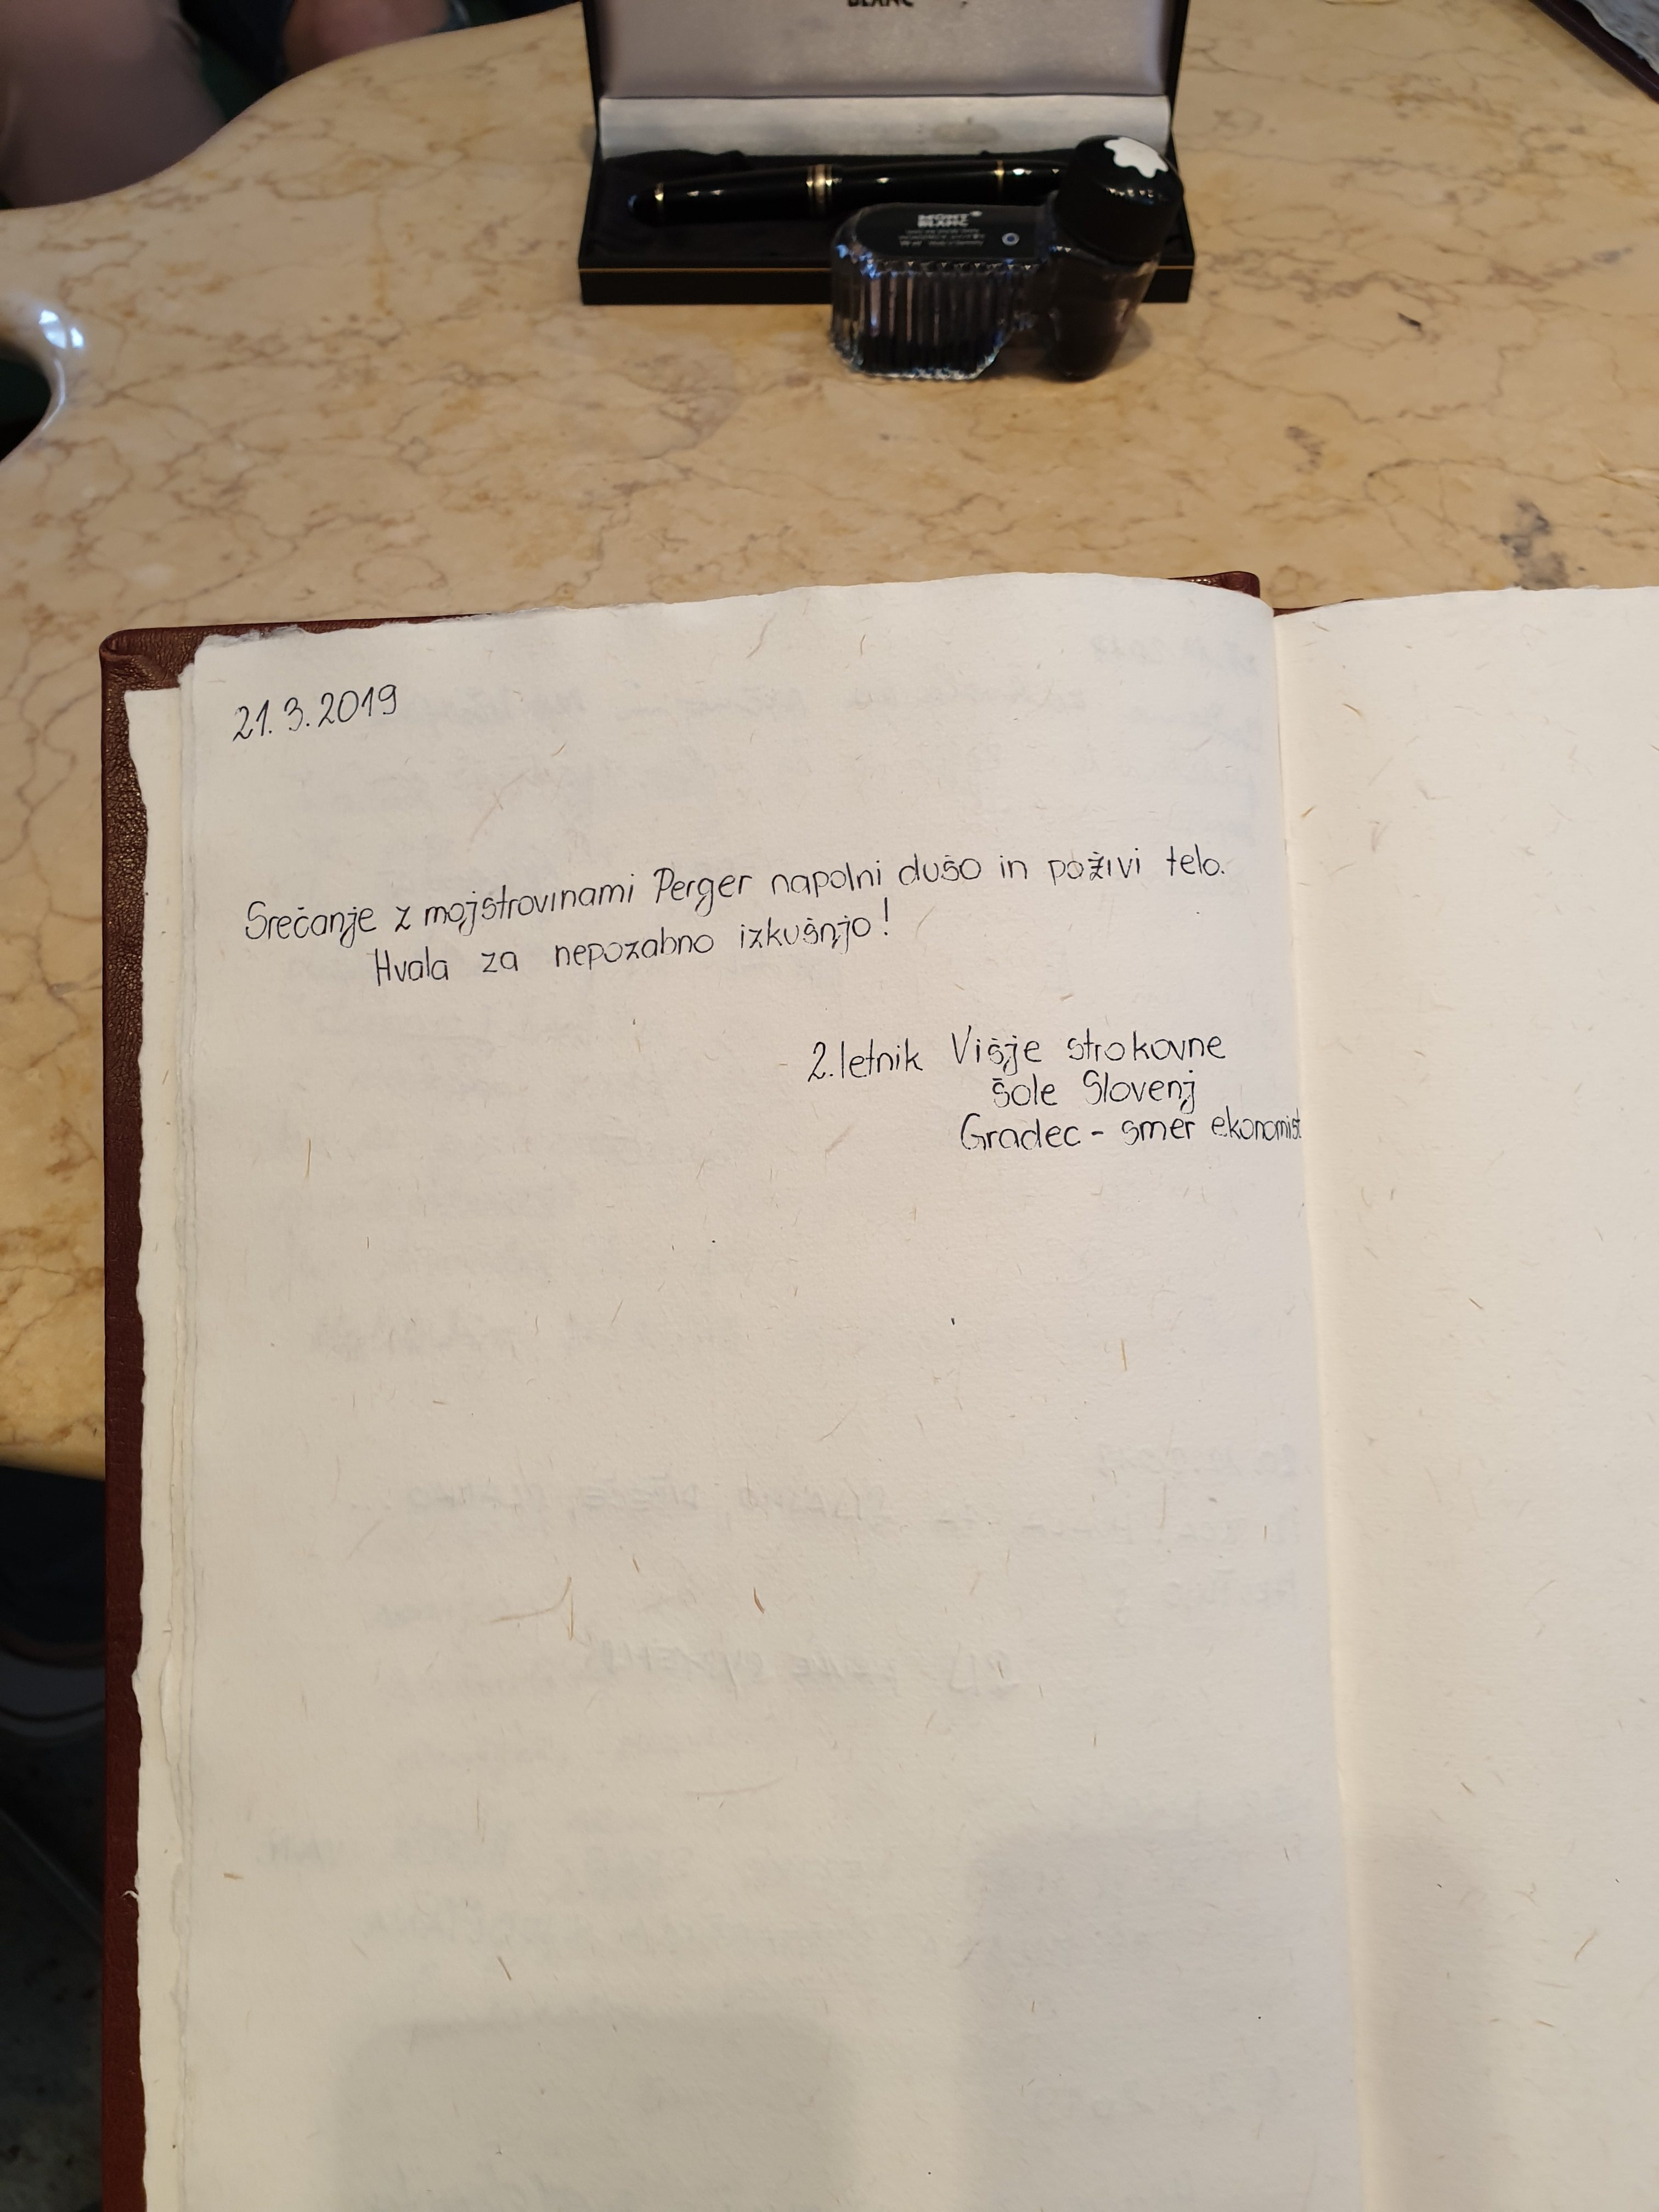 BLANC
MONT
BLANC
21.3.2019
Srečanje z mojstrovinami Perger napolni dušo in poživi telo.
Hvala za nepozabno izkušnjo!
2. letnik Višje strokovne
šole Slovenj
Gradec - smer ekonomist